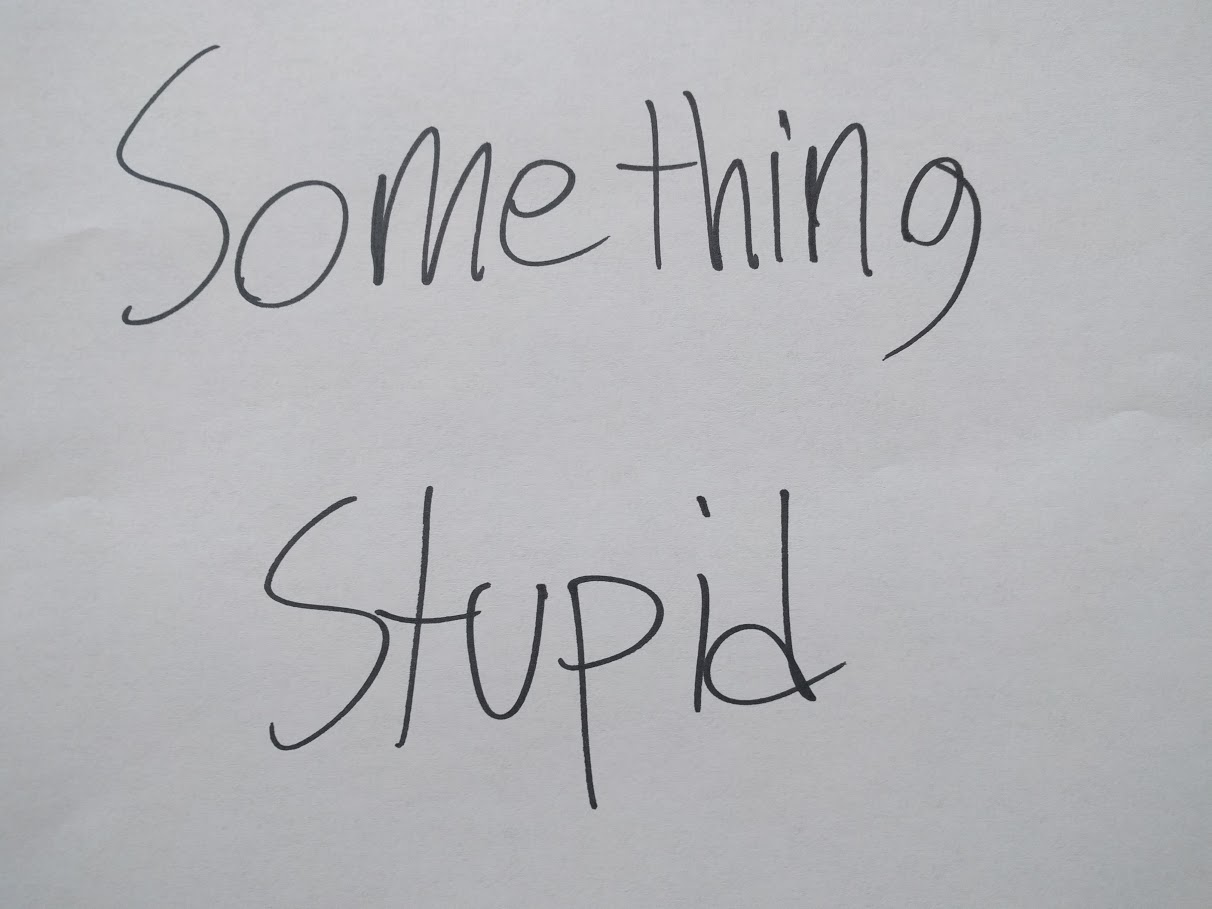 Something
Stupid